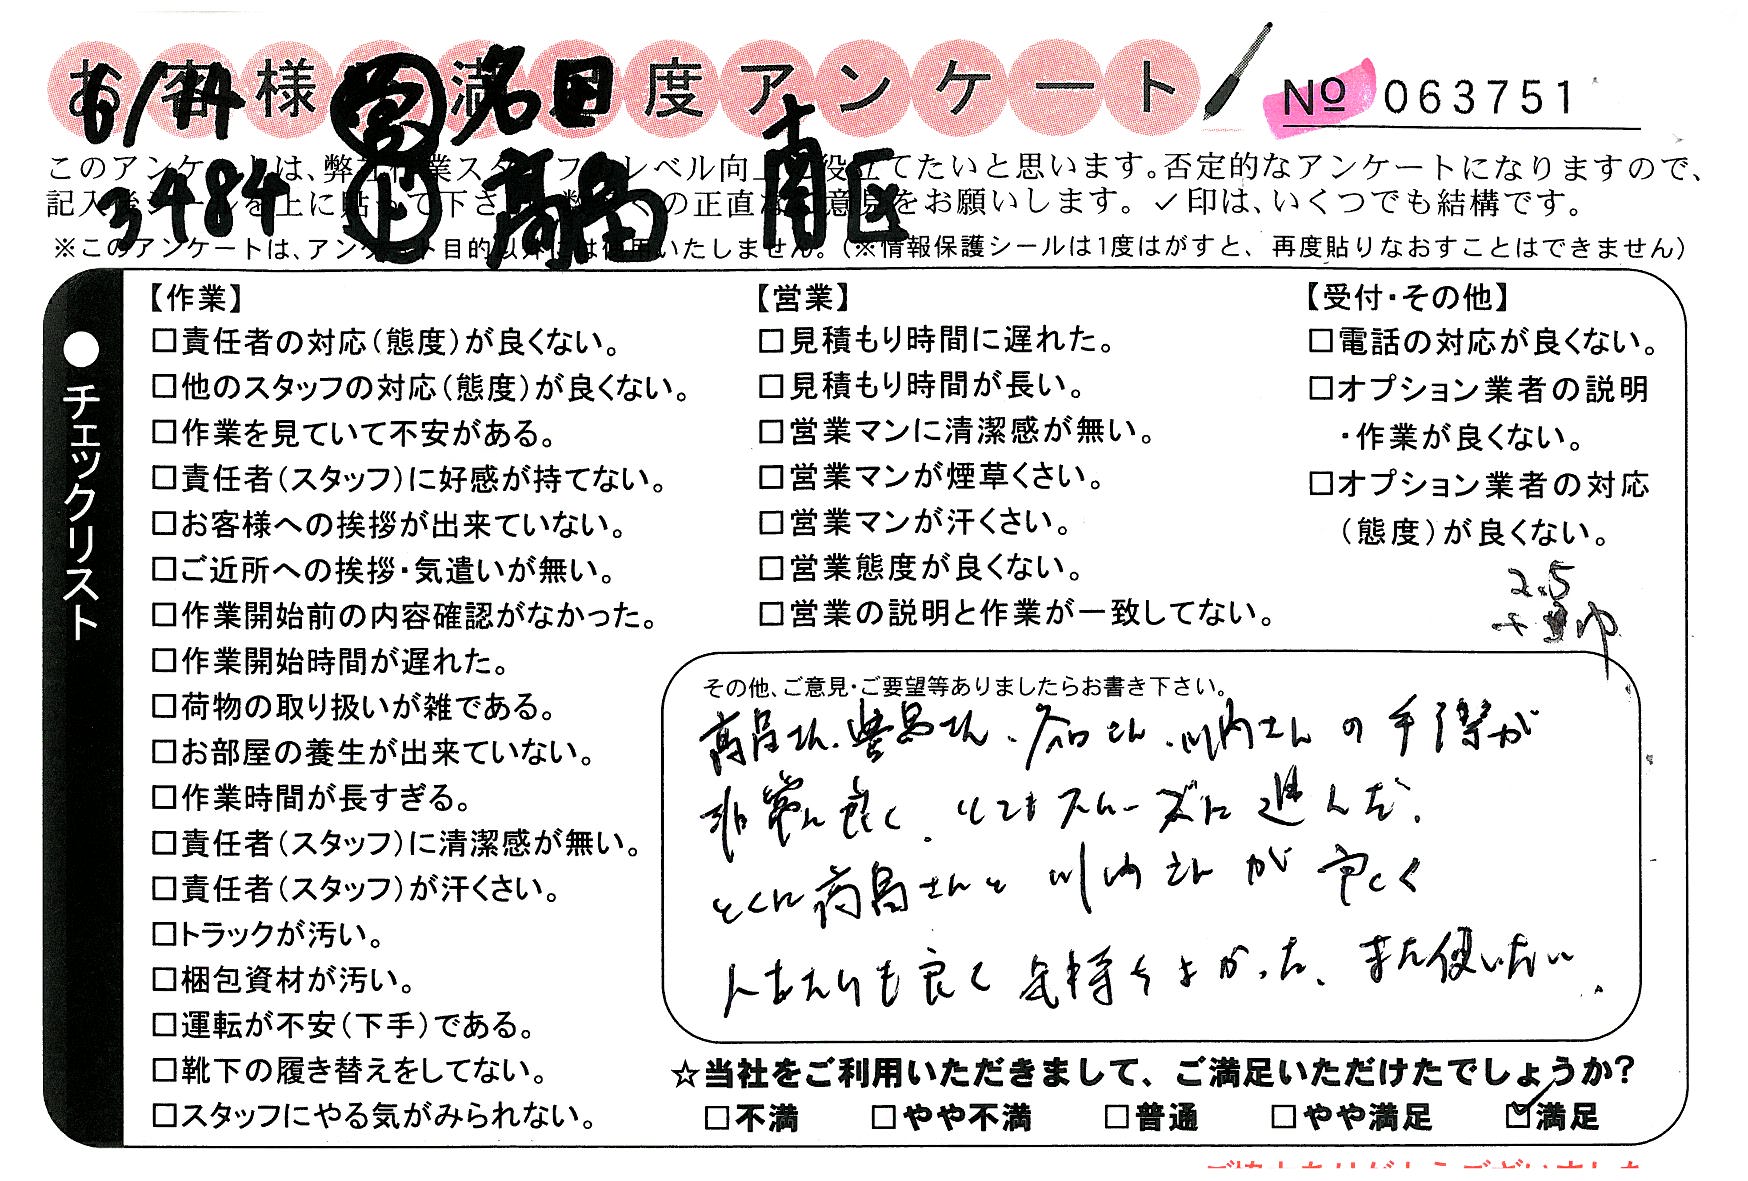 お客様満足度アンケート
№ 063751
6/14 営 名田 南区
3484 作 高畠
このアンケートは、弊社作業スタッフのレベル向上に役立てたいと思います。否定的なアンケートになりますので、
記入後シールを上に貼って下さい。数多くの正直なご意見をお願いします。✓印は、いくつでも結構です。
※このアンケートは、アンケート目的以外には使用いたしません。（※情報保護シールは1度はがすと、再度貼りなおすことはできません）
●チェックリスト
【作業】
□責任者の対応（態度）が良くない。
□他のスタッフの対応（態度）が良くない。
□作業を見ていて不安がある。
□責任者（スタッフ）に好感が持てない。
□お客様への挨拶が出来ていない。
□ご近所への挨拶・気遣いが無い。
□作業開始前の内容確認がなかった。
□作業開始時間が遅れた。
□荷物の取り扱いが雑である。
□お部屋の養生が出来ていない。
□作業時間が長すぎる。
□責任者（スタッフ）に清潔感が無い。
□責任者（スタッフ）が汗くさい。
□トラックが汚い。
□梱包資材が汚い。
□運転が不安（下手）である。
□靴下の履き替えをしてない。
□スタッフにやる気がみられない。
【営業】
□見積もり時間に遅れた。
□見積もり時間が長い。
□営業マンに清潔感が無い。
□営業マンが煙草くさい。
□営業マンが汗くさい。
□営業態度が良くない。
□営業の説明と作業が一致してない。
【受付・その他】
□電話の対応が良くない。
□オプション業者の説明
・作業が良くない。
□オプション業者の対応
（態度）が良くない。
2.5
その他、ご意見・ご要望等ありましたらお書き下さい。
高畠さん、豊島さん、谷口さん、川内さんの手際が
非常に良く、とてもスムーズに進んだ。
とくに高畠さんと川内さんが良く
人あたりも良く気持ちよかった、また使いたい。
☆当社をご利用いただきまして、ご満足いただけたでしょうか？
□不満 □やや不満 □普通 □やや満足 ☑満足